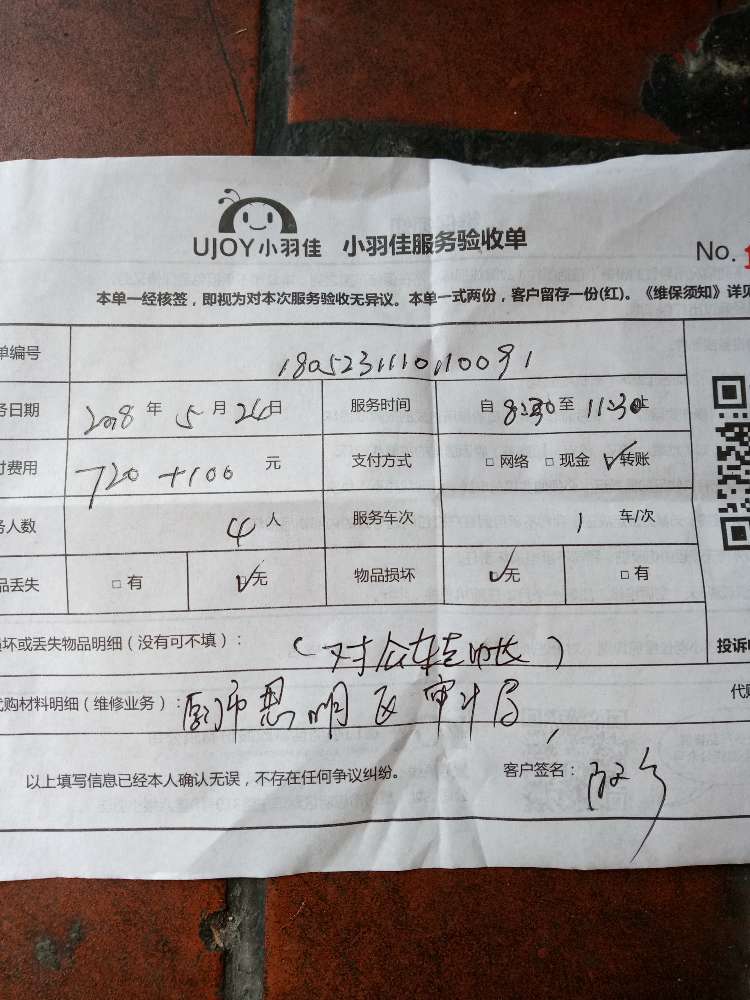 UJOY小羽佳 小羽佳服务验收单
No.
本单一经核签，即视为对本次服务验收无异议。本单一式两份，客户留存一份(红)。《维保须知》详见
单编号 180523111010091
务日期 2018 年 5 月 26 日 服务时间 自 8:30 至 11:30 止
付费用 720+100 元 支付方式 □ 网络 □ 现金 ☑ 转账
务人数 4 人 服务车次 1 车/次
品丢失 □ 有 ☑ 无 物品损坏 ☑ 无 □ 有
损坏或丢失物品明细（没有可不填）： （对公转
投诉
代购材料明细（维修业务）： 思明区审计局
代购
以上填写信息已经本人确认无误，不存在任何争议纠纷。 客户签名：